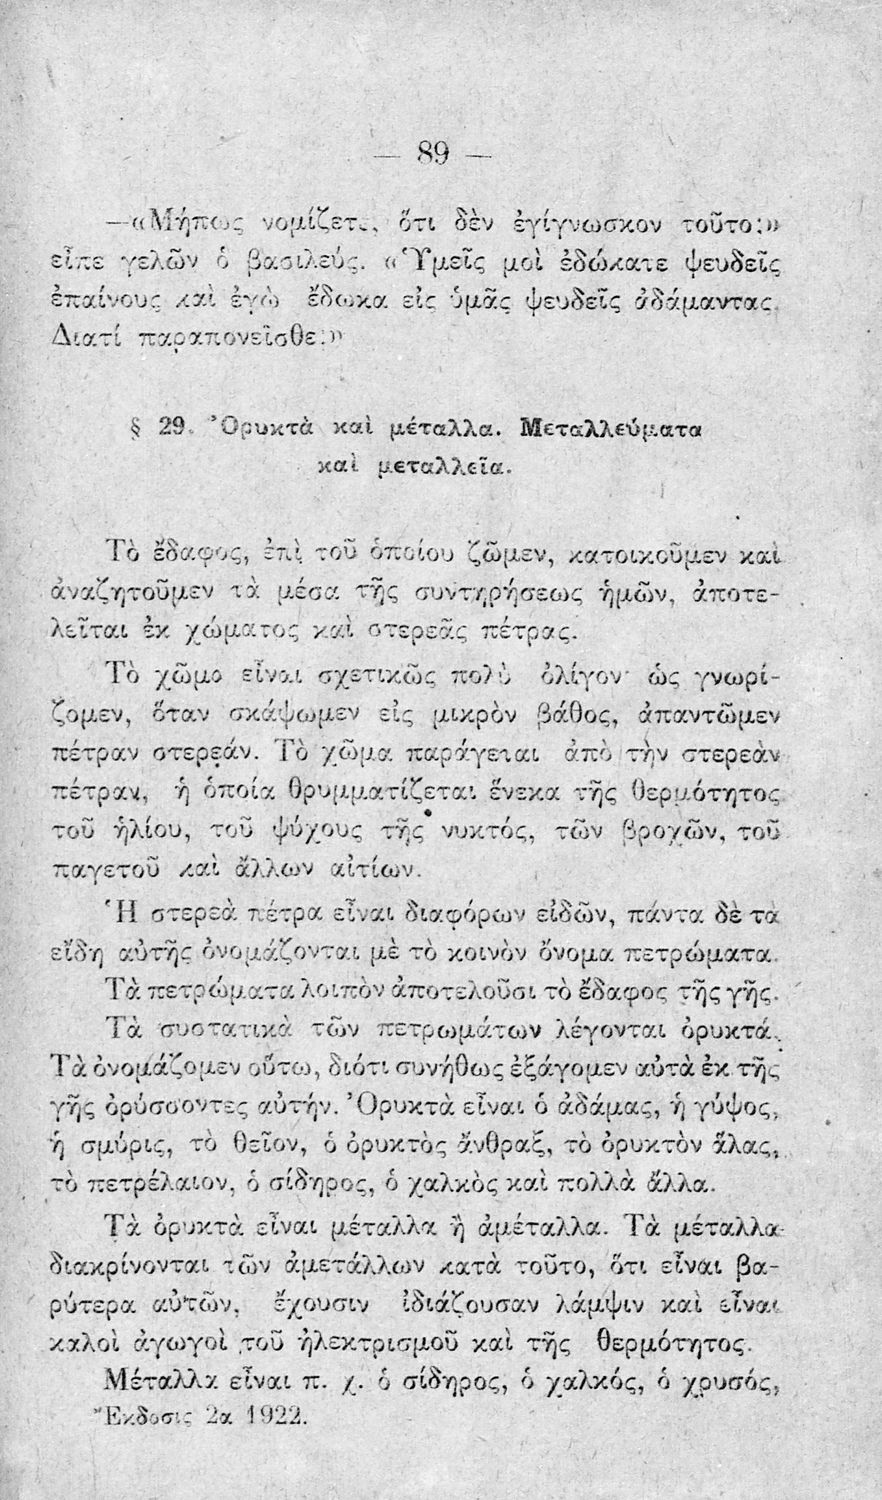 — 89 —
—«Μήπως νομίζετε, ὅτι δὲν ἐγίγνωσκον τοῦτο;»
εἶπε γελῶν ὁ βασιλεύς. «Ὑμεῖς μοὶ ἐδώκατε ψευδεῖς
ἐπαίνους καὶ ἐγὼ ἔδωκα εἰς ὑμᾶς ψευδεῖς ἀδάμαντας.
Διατί παραπονεῖσθε;»
§ 29. Ὀρυκτὰ καὶ μέταλλα. Μεταλλεύματα
καὶ μεταλλεῖα.
Τὸ ἔδαφος, ἐπὶ τοῦ ὁποίου ζῶμεν, κατοικοῦμεν καὶ
ἀναζητοῦμεν τὰ μέσα τῆς συντηρήσεως ἡμῶν, ἀποτε-
λεῖται ἐκ χώματος καὶ στερεᾶς πέτρας.
Τὸ χῶμα εἶναι σχετικῶς πολὺ ὀλίγον· ὡς γνωρί-
ζομεν, ὅταν σκάψωμεν εἰς μικρὸν βάθος, ἀπαντῶμεν
πέτραν στερεάν. Τὸ χῶμα παράγεται ἀπὸ τὴν στερεὰν
πέτραν, ἡ ὁποία θρυμματίζεται ἕνεκα τῆς θερμότητος
τοῦ ἡλίου, τοῦ ψύχους τῆς νυκτός, τῶν βροχῶν, τοῦ
παγετοῦ καὶ ἄλλων αἰτίων.
Ἡ στερεὰ πέτρα εἶναι διαφόρων εἰδῶν, πάντα δὲ τὰ
εἴδη αὐτῆς ὀνομάζονται μὲ τὸ κοινὸν ὄνομα πετρώματα.
Τὰ πετρώματα λοιπὸν ἀποτελοῦσι τὸ ἔδαφος τῆς γῆς.
Τὰ συστατικὰ τῶν πετρωμάτων λέγονται ὀρυκτά.
Τὰ ὀνομάζομεν οὕτω, διότι συνήθως ἐξάγομεν αὐτὰ ἐκ τῆς
γῆς ὀρύσσοντες αὐτήν. Ὀρυκτὰ εἶναι ὁ ἀδάμας, ἡ γύψος,
ἡ σμύρις, τὸ θεῖον, ὁ ὀρυκτὸς ἄνθραξ, τὸ ὀρυκτὸν ἅλας,
τὸ πετρέλαιον, ὁ σίδηρος, ὁ χαλκὸς καὶ πολλὰ ἄλλα.
Τὰ ὀρυκτὰ εἶναι μέταλλα ἢ ἀμέταλλα. Τὰ μέταλλα
διακρίνονται τῶν ἀμετάλλων κατὰ τοῦτο, ὅτι εἶναι βα-
ρύτερα αὐτῶν, ἔχουσιν ἰδιάζουσαν λάμψιν καὶ εἶναι
καλοὶ ἀγωγοὶ τοῦ ἠλεκτρισμοῦ καὶ τῆς θερμότητος.
Μέταλλα εἶναι π. χ. ὁ σίδηρος, ὁ χαλκός, ὁ χρυσός,
Ἔκδοσις 2α 1922.